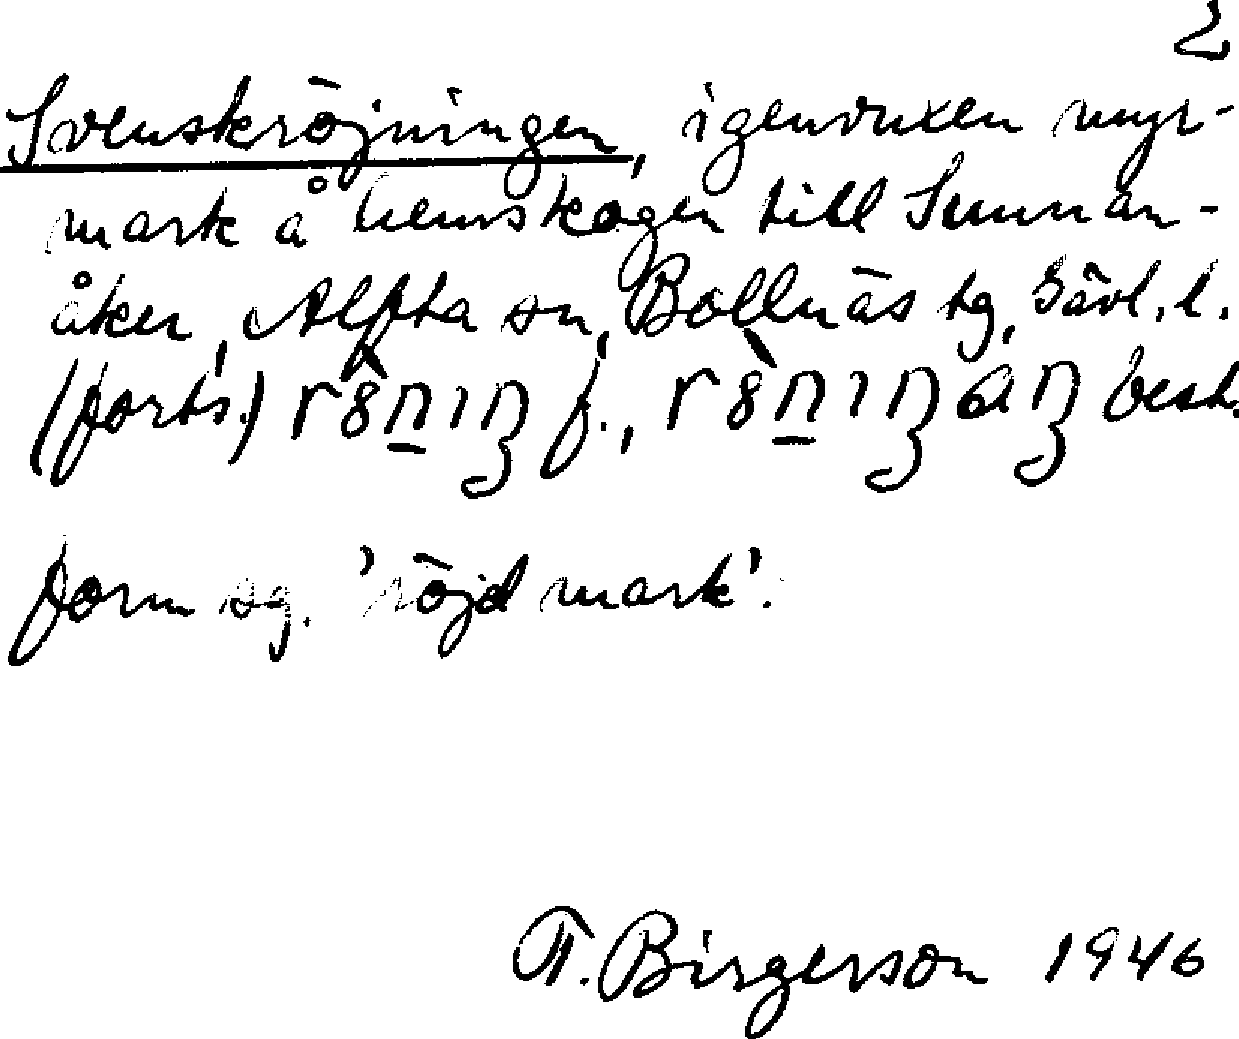 2
Svenskröjningen, igenvuxen myr-
mark å hemskogen till Sunnan-
åker, Alfta sn, Bollnäs tg, Gävl. l.
(forts.) f., best.
form sg. 'röjd mark'.
T. Birgerson 1946